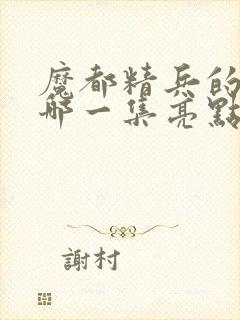 魔都精兵的
哪一集亮點
謝村